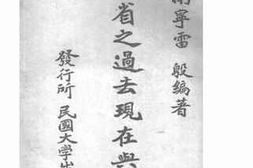 南寧雷 殷編著
省之過去現在與
發行所 民國大學出